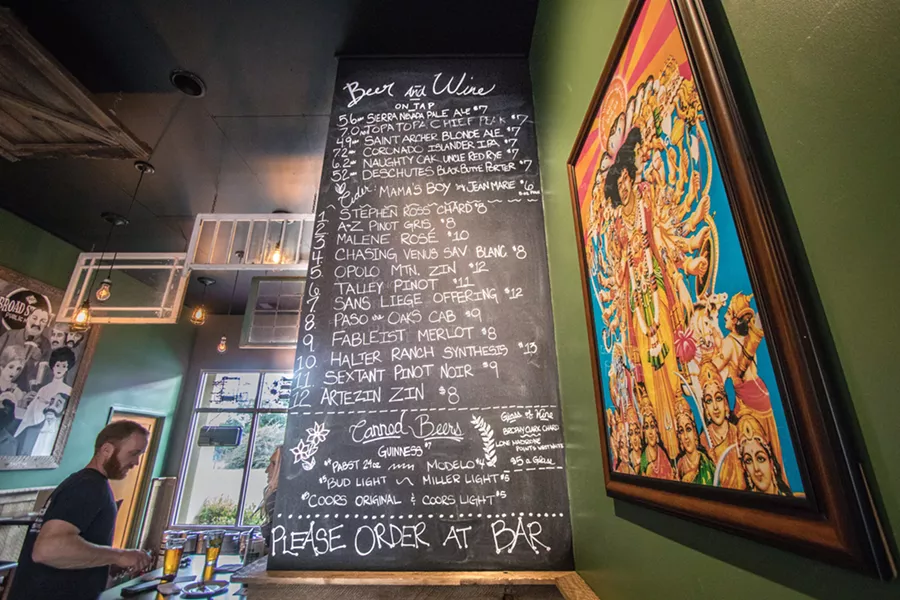 Beer and Wine
ON TAP
5.6% SIERRA NEVADA PALE ALE $7
7.0% TOPA TOPA CHIEF PEAK $7
4.9% SAINT ARCHER BLONDE ALE $7
7.2% CORONADO ISLANDER IPA $7
6.2% NAUGHTY OAK UNCLE RED RYE $7
5.2% DESCHUTES BLACK BUTTE PORTER $7
Cider: MAMA'S BOY BY JEAN MARIE $6
1 STEPHEN ROSS CHARD $8
2 A-Z PINOT GRIS $8
3 MALENE ROSÉ $10
4 CHASING VENUS SAV BLANC $8
5 OPOLO MTN. ZIN $12
6 TALLEY PINOT $11
7 SANS LIEGE OFFERING $12
8 PASO OAKS CAB $9
9 FABLEIST MERLOT $8
10 HALTER RANCH SYNTHESIS $13
11 SEXTANT PINOT NOIR $9
12 ARTEZIN ZIN $8
Canned Beers
GUINNESS $7
$4 PABST 24oz MODELO $4
$5 BUD LIGHT MILLER LIGHT $5
$5 COORS ORIGINAL & COORS LIGHT $5
Glass of Wine
CHARD
LONE MADRONE
POINTS WEST WHITE
$5 A GLASS
PLEASE ORDER AT BAR
BROAD ST
PUBLIC